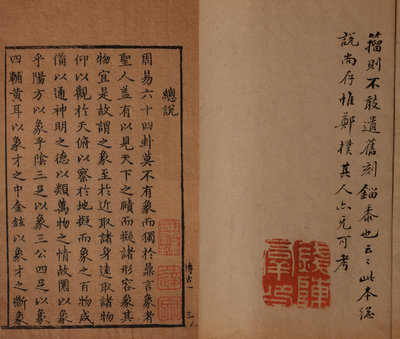 籀則不敢遺舊刻錙黍也云云此本總
說尚存惟鄭樸其人亦无可考
總說
周易六十四卦莫不有象而獨於鼎言象者
聖人蓋有以見天下之賾而擬諸形容象其
物宜是故謂之象至於近取諸身遠取諸物
仰以觀於天俯以察於地擬而象之百物咸
備以通神明之德以類萬物之情故圜以象
乎陽方以象乎陰三足以象三公四足以象
四輔黃耳以象才之中金鉉以象才之斷象